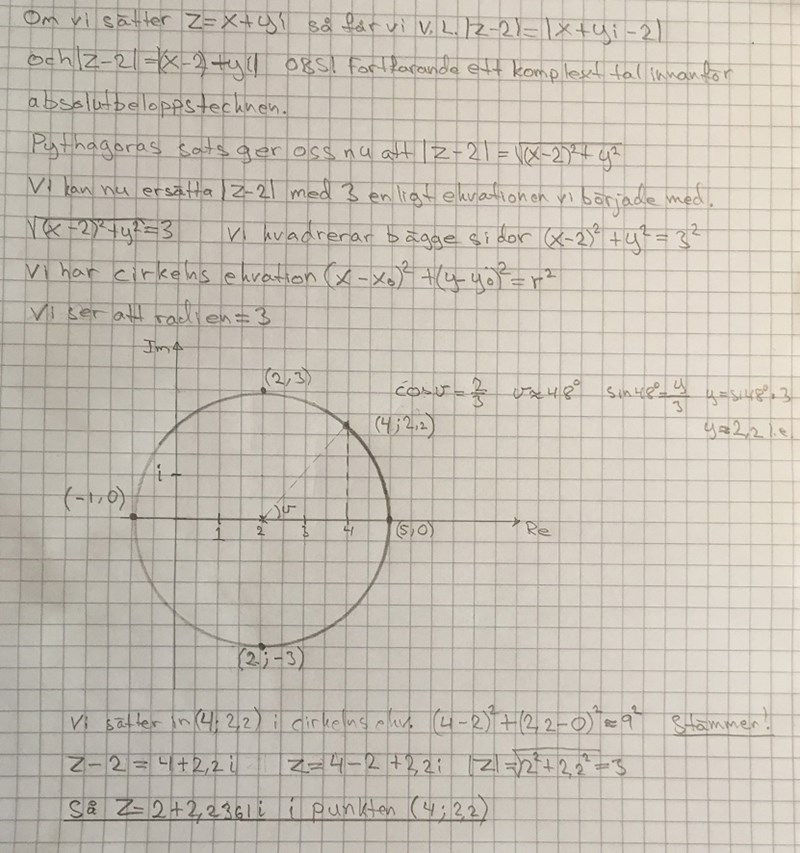 Om vi sätter z=x+yi så får vi V.L. |z-2|=|x+yi-2|
och |z-2|=|(x-2)+yi| OBS! Fortfarande ett komplext tal innanför
absolutbeloppstecknen.
Pythagoras sats ger oss nu att |z-2|=√(x-2)²+y²
Vi kan nu ersätta |z-2| med 3 enligt ekvationen vi började med.
√(x-2)²+y²=3 Vi kvadrerar bägge sidor (x-2)²+y²=3²
Vi har cirkelns ekvation (x-x₀)²+(y-y₀)²=r²
Vi ser att radien=3
Im
(2,3)
cosv=2/3 v≈48° sin48°=y/3 y=sin48°·3
(4;2,2)
y≈2,2 l.e.
i
(-1,0)
v
1 2 3 4
(5,0)
Re
(2;-3)
Vi sätter in (4;2,2) i cirkelns ekv. (4-2)²+(2,2-0)²≈9² Stämmer!
z-2=4+2,2i z=4-2+2,2i |z|=√2²+2,2²=3
Så z=2+2,2361i i punkten (4;2,2)